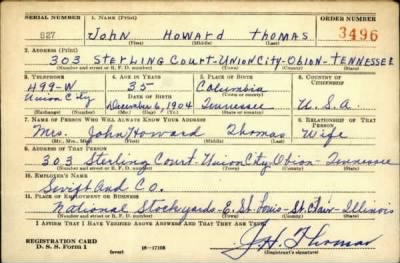 SERIAL NUMBER 1. NAME (Print) ORDER NUMBER
827 John Howard Thomas 3496
(First) (Middle) (Last)
2. ADDRESS (Print)
303 Sterling Court-Union City-Obion-Tennessee
(Number and street or R. F. D. number) (Town) (County) (State)
3. TELEPHONE 4. AGE IN YEARS 5. PLACE OF BIRTH 6. COUNTRY OF CITIZENSHIP
499-W 35 Columbia
DATE OF BIRTH (Town or county)
Union City December 6, 1904 Tennessee U.S.A.
(Exchange) (Number) (Mo.) (Day) (Yr.) (State or country)
7. NAME OF PERSON WHO WILL ALWAYS KNOW YOUR ADDRESS 8. RELATIONSHIP OF THAT PERSON
Mrs. John Howard Thomas Wife
(Mr., Mrs., Miss) (First) (Middle) (Last)
9. ADDRESS OF THAT PERSON
303 Sterling Court-Union City Obion-Tennessee
(Number and street or R. F. D. number) (Town) (County) (State)
10. EMPLOYER'S NAME
Swift and Co.
11. PLACE OF EMPLOYMENT OR BUSINESS
National Stockyards-E. St. Louis-St. Clair-Illinois
(Number and street or R. F. D. number) (Town) (County) (State)
I AFFIRM THAT I HAVE VERIFIED ABOVE ANSWERS AND THAT THEY ARE TRUE.
REGISTRATION CARD
D. S. S. Form 1 (over) 16-17105 J.H. Thomas
(Registrant's signature)